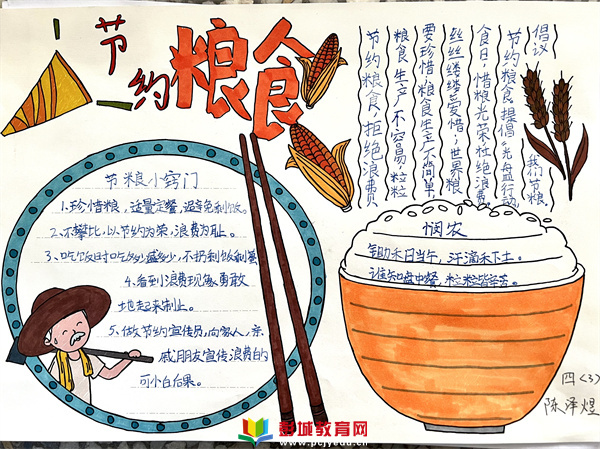 节约粮食
倡议
节约粮食提倡“光盘行动
我们节粮
食日，惜粮光荣杜绝浪费
丝丝缕缕爱惜；世界粮
要珍惜粮食生产不简单，
粮食生产不容易粒粒
节约粮食，拒绝浪费
节粮小窍门
1、珍惜粮，适量定餐，避免剩饭。
2、不攀比，以节约为荣，浪费为耻。
3、吃饭时吃多少盛多少，不扔剩饭剩菜
4、看到浪费现象勇敢
地起来制止。
5、做节约宣传员，向家人，亲
戚朋友宣传浪费的
可小白后果。
悯农
锄禾日当午，汗滴禾下土。
谁知盘中餐，粒粒皆辛苦。
四（3）
陈泽煜
彭城教育网
www.pcjyedu.cn